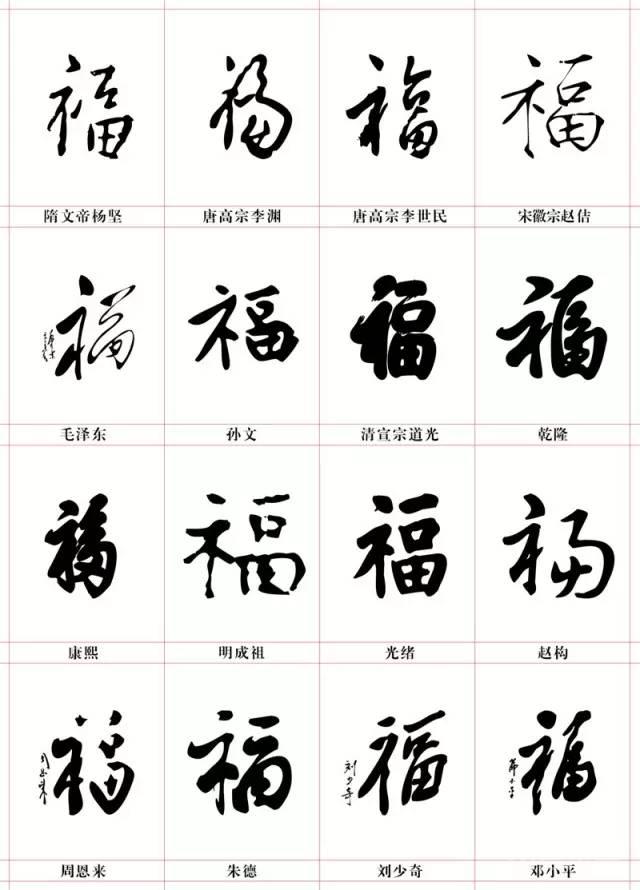 福 福 福 福
隋文帝杨坚 唐高宗李渊 唐高宗李世民 宋徽宗赵佶
福 福 福 福
毛泽东 孙文 清宣宗道光 乾隆
福 福 福 福
康熙 明成祖 光绪 赵构
福 福 福 福
周恩来 刘少奇 邓小平
周恩来 朱德 刘少奇 邓小平